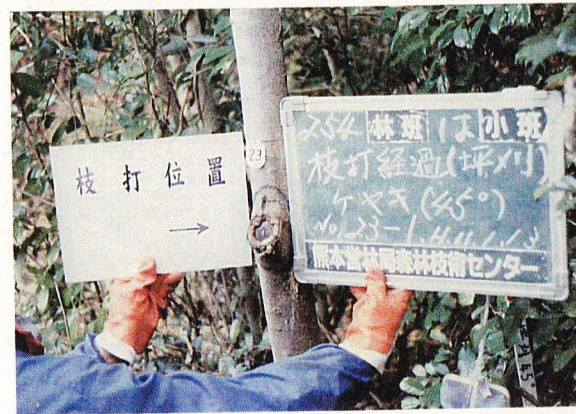 枝打位置
→
23
254 林班 は 小班
枝打経過(坪刈)
ケヤキ(45°)
No.23-1 H11.1.13
熊本営林局森林技術センター